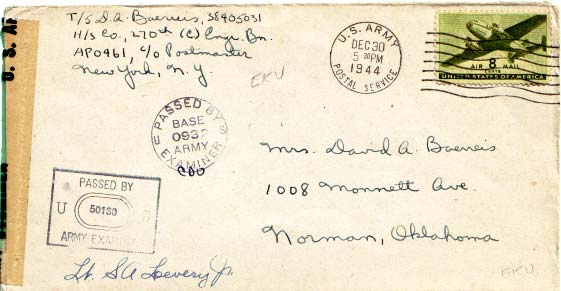 T/5 D. A. Baerreis, 38405031
H/S Co., 270th (C) Engr. Bn.
APO 461, c/o Postmaster
New York, N. Y.
EKU
U. S. ARMY
DEC 30
5 30PM
1944
POSTAL SERVICE
AIR 8 MAIL
CENTS
UNITED STATES OF AMERICA
U. S. A
PASSED BY
BASE
ARMY
EXAMINER
Mrs. David A. Baerreis
1008 Monnett Ave.
Norman, Oklahoma
PASSED BY
U 50180
ARMY EXAMI
Lt. SA Jr.
EKU